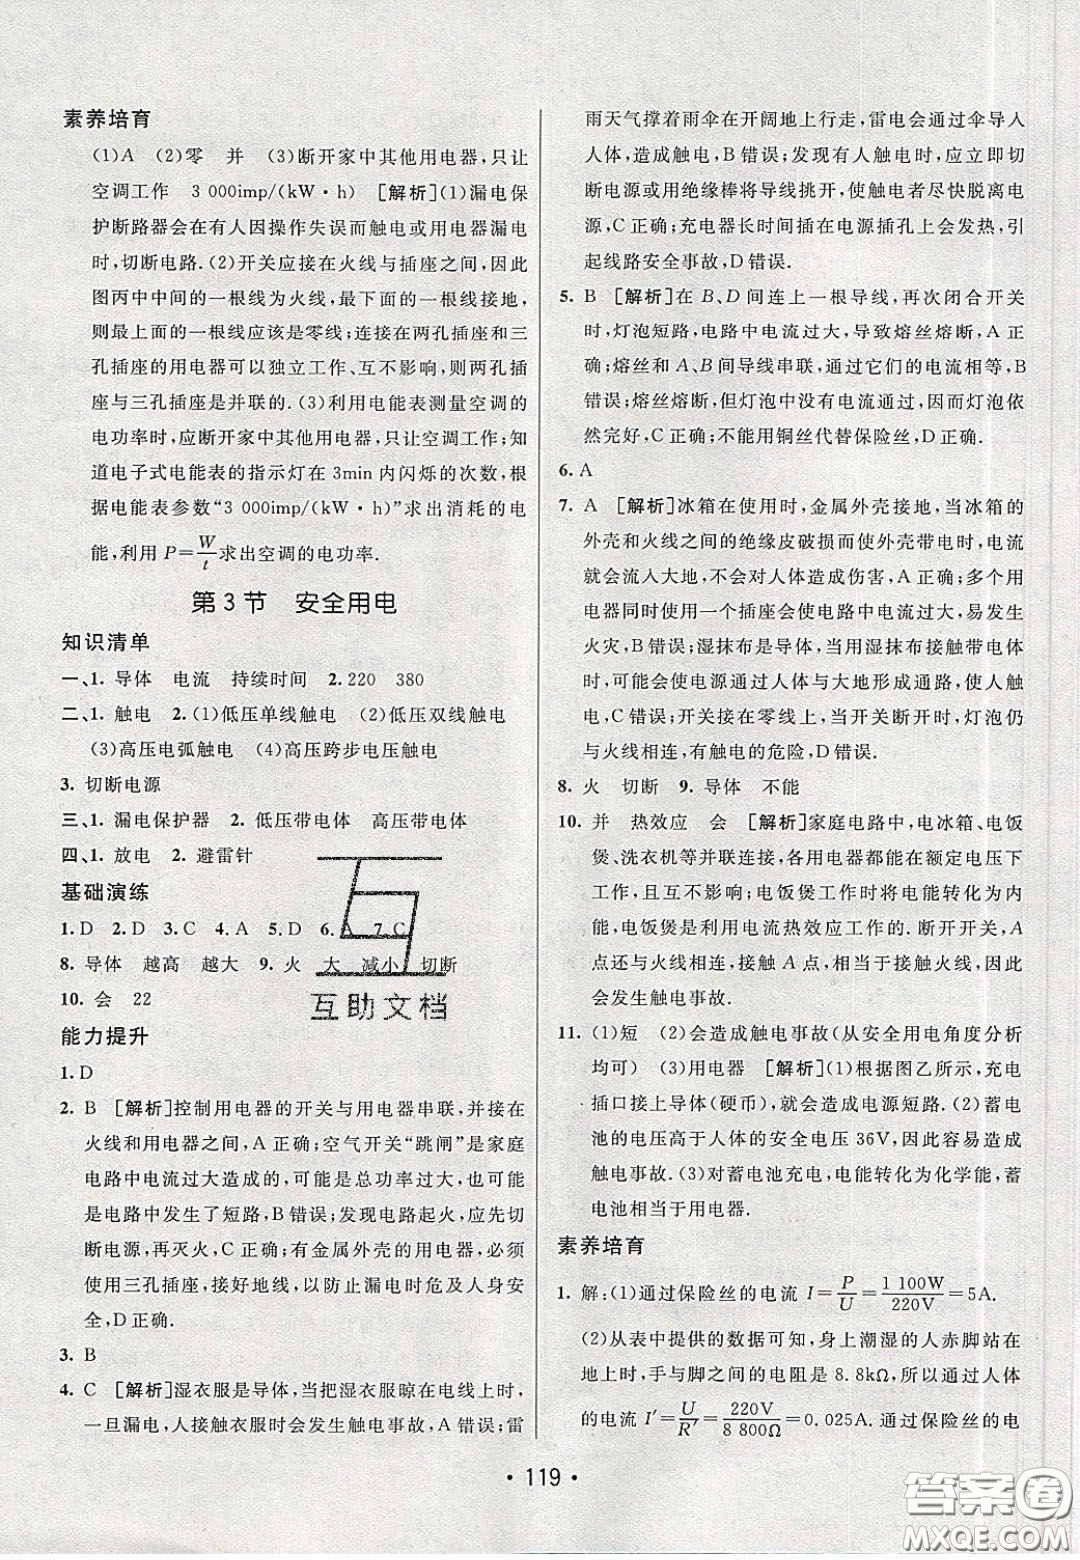 素养培育
(1)A　(2)零　并　(3)断开家中其他用电器,只让
空调工作　3 000imp/(kW·h)　[解析](1)漏电保
护断路器会在有人因操作失误而触电或用电器漏电
时,切断电路.(2)开关应接在火线与插座之间,因此
图丙中中间的一根线为火线,最下面的一根线接地,
则最上面的一根线应该是零线;连接在两孔插座和三
孔插座的用电器可以独立工作、互不影响,则两孔插
座与三孔插座是并联的.(3)利用电能表测量空调的
电功率时,应断开家中其他用电器,只让空调工作;知
道电子式电能表的指示灯在3min内闪烁的次数,根
据电能表参数“3 000imp/(kW·h)”求出消耗的电
能,利用 P=W/t求出空调的电功率.
第3节　安全用电
知识清单
一、1. 导体　电流　持续时间　2. 220　380
二、1. 触电　2. (1)低压单线触电　(2)低压双线触电
(3)高压电弧触电　(4)高压跨步电压触电
3. 切断电源
三、1. 漏电保护器　2. 低压带电体　高压带电体
四、1. 放电　2. 避雷针
基础演练
1. D　2. D　3. C　4. A　5. D　6. A　7. C
8. 导体　越高　越大　9. 火　大　减小　切断
10. 会　22
能力提升
1. D
2. B　[解析]控制用电器的开关与用电器串联,并接在
火线和用电器之间,A正确;空气开关“跳闸”是家庭
电路中电流过大造成的,可能是总功率过大,也可能
是电路中发生了短路,B错误;发现电路起火,应先切
断电源,再灭火,C正确;有金属外壳的用电器,必须
使用三孔插座,接好地线,以防止漏电时危及人身安
全,D正确.
3. B
4. C　[解析]湿衣服是导体,当把湿衣服晾在电线上时,
一旦漏电,人接触衣服时会发生触电事故,A错误;雷
雨天气撑着雨伞在开阔地上行走,雷电会通过伞导入
人体,造成触电,B错误;发现有人触电时,应立即切
断电源或用绝缘棒将导线挑开,使触电者尽快脱离电
源,C正确;充电器长时间插在电源插孔上会发热,引
起线路安全事故,D错误.
5. B　[解析]在B、D间连上一根导线,再次闭合开关
时,灯泡短路,电路中电流过大,导致熔丝熔断,A正
确;熔丝和A、B间导线串联,通过它们的电流相等,B
错误;熔丝熔断,但灯泡中没有电流通过,因而灯泡依
然完好,C正确;不能用铜丝代替保险丝,D正确.
6. A
7. A　[解析]冰箱在使用时,金属外壳接地,当冰箱的
外壳和火线之间的绝缘皮破损而使外壳带电时,电流
就会流入大地,不会对人体造成伤害,A正确;多个用
电器同时使用一个插座会使电路中电流过大,易发生
火灾,B错误;湿抹布是导体,当用湿抹布接触带电体
时,可能会使电源通过人体与大地形成通路,使人触
电,C错误;开关接在零线上,当开关断开时,灯泡仍
与火线相连,有触电的危险,D错误.
8. 火　切断　9. 导体　不能
10. 并　热效应　会　[解析]家庭电路中,电冰箱、电饭
煲、洗衣机等并联连接,各用电器都能在额定电压下
工作,且互不影响;电饭煲工作时将电能转化为内
能,电饭煲是利用电流热效应工作的.断开开关,A
点还与火线相连,接触A点,即接触火线,因此
会发生触电事故.
11. (1)短　(2)会造成触电事故(从安全用电角度分析
均可)　(3)用电器　[解析](1)根据图乙所示,充电
插口接上导体(硬币),就会造成电源短路.(2)蓄电
池的电压高于人体的安全电压36V,因此容易造成
触电事故.(3)对蓄电池充电,电能转化为化学能,蓄
电池相当于用电器.
素养培育
1. 解:(1)通过保险丝的电流 I=P/U=1 100W/220V=5A.
(2)从表中提供的数据可知,身上潮湿的人赤脚站在
地上时,手与脚之间的电阻是8.8kΩ,所以通过人体
的电流 I′=U/R′=220V/8 800Ω=0.025A.通过保险丝的电
· 119 ·
互助文档
答案圈
MXQE.COM